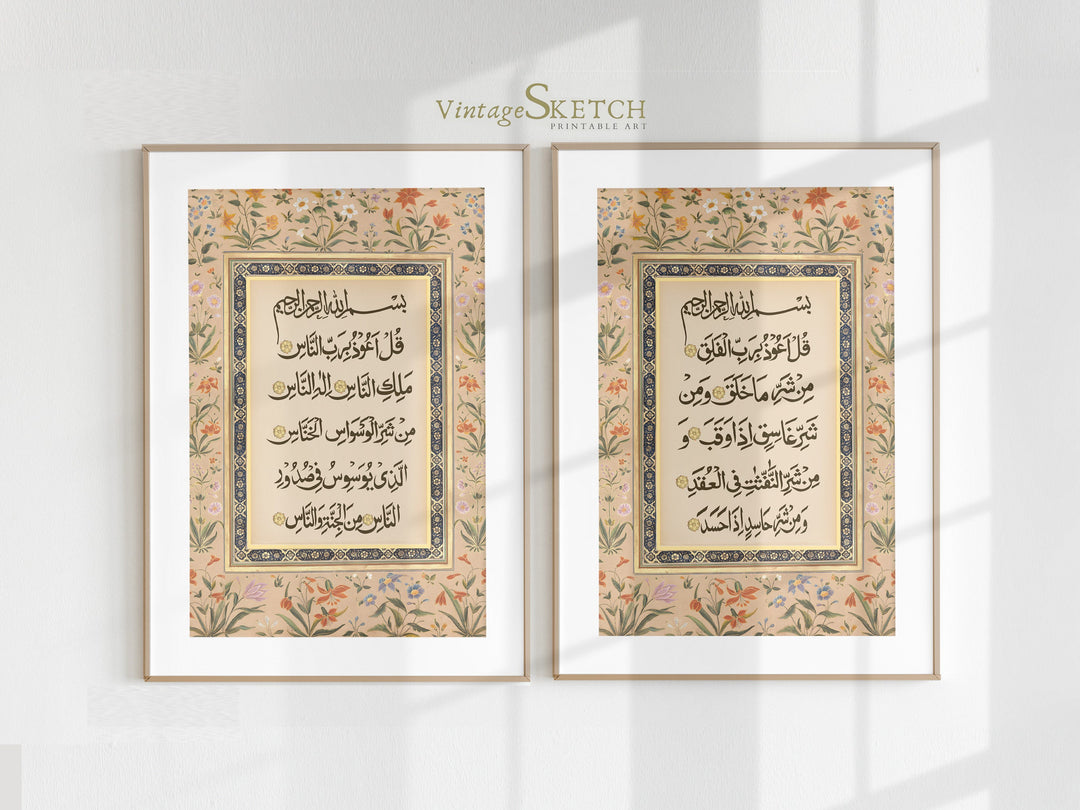 VintageSKETCH
PRINTABLE ART
بسم الله الرحمن الرحيم
قُلْ اَعُوْذُ بِرَبِّ النَّاسِ
مَلِكِ النَّاسِ اِلٰهِ النَّاسِ
مِنْ شَرِّ الْوَسْوَاسِ الْخَنَّاسِ
الَّذِىْ يُوَسْوِسُ فِىْ صُدُوْرِ
النَّاسِ مِنَ الْجِنَّةِ وَالنَّاسِ
بسم الله الرحمن الرحيم
قُلْ اَعُوْذُ بِرَبِّ الْفَلَقِ
مِنْ شَرِّ مَا خَلَقَ وَ مِنْ
شَرِّ غَاسِقٍ اِذَا وَقَبَ وَ
مِنْ شَرِّ النَّفّٰثٰتِ فِى الْعُقَدِ
وَ مِنْ شَرِّ حَاسِدٍ اِذَا حَسَدَ